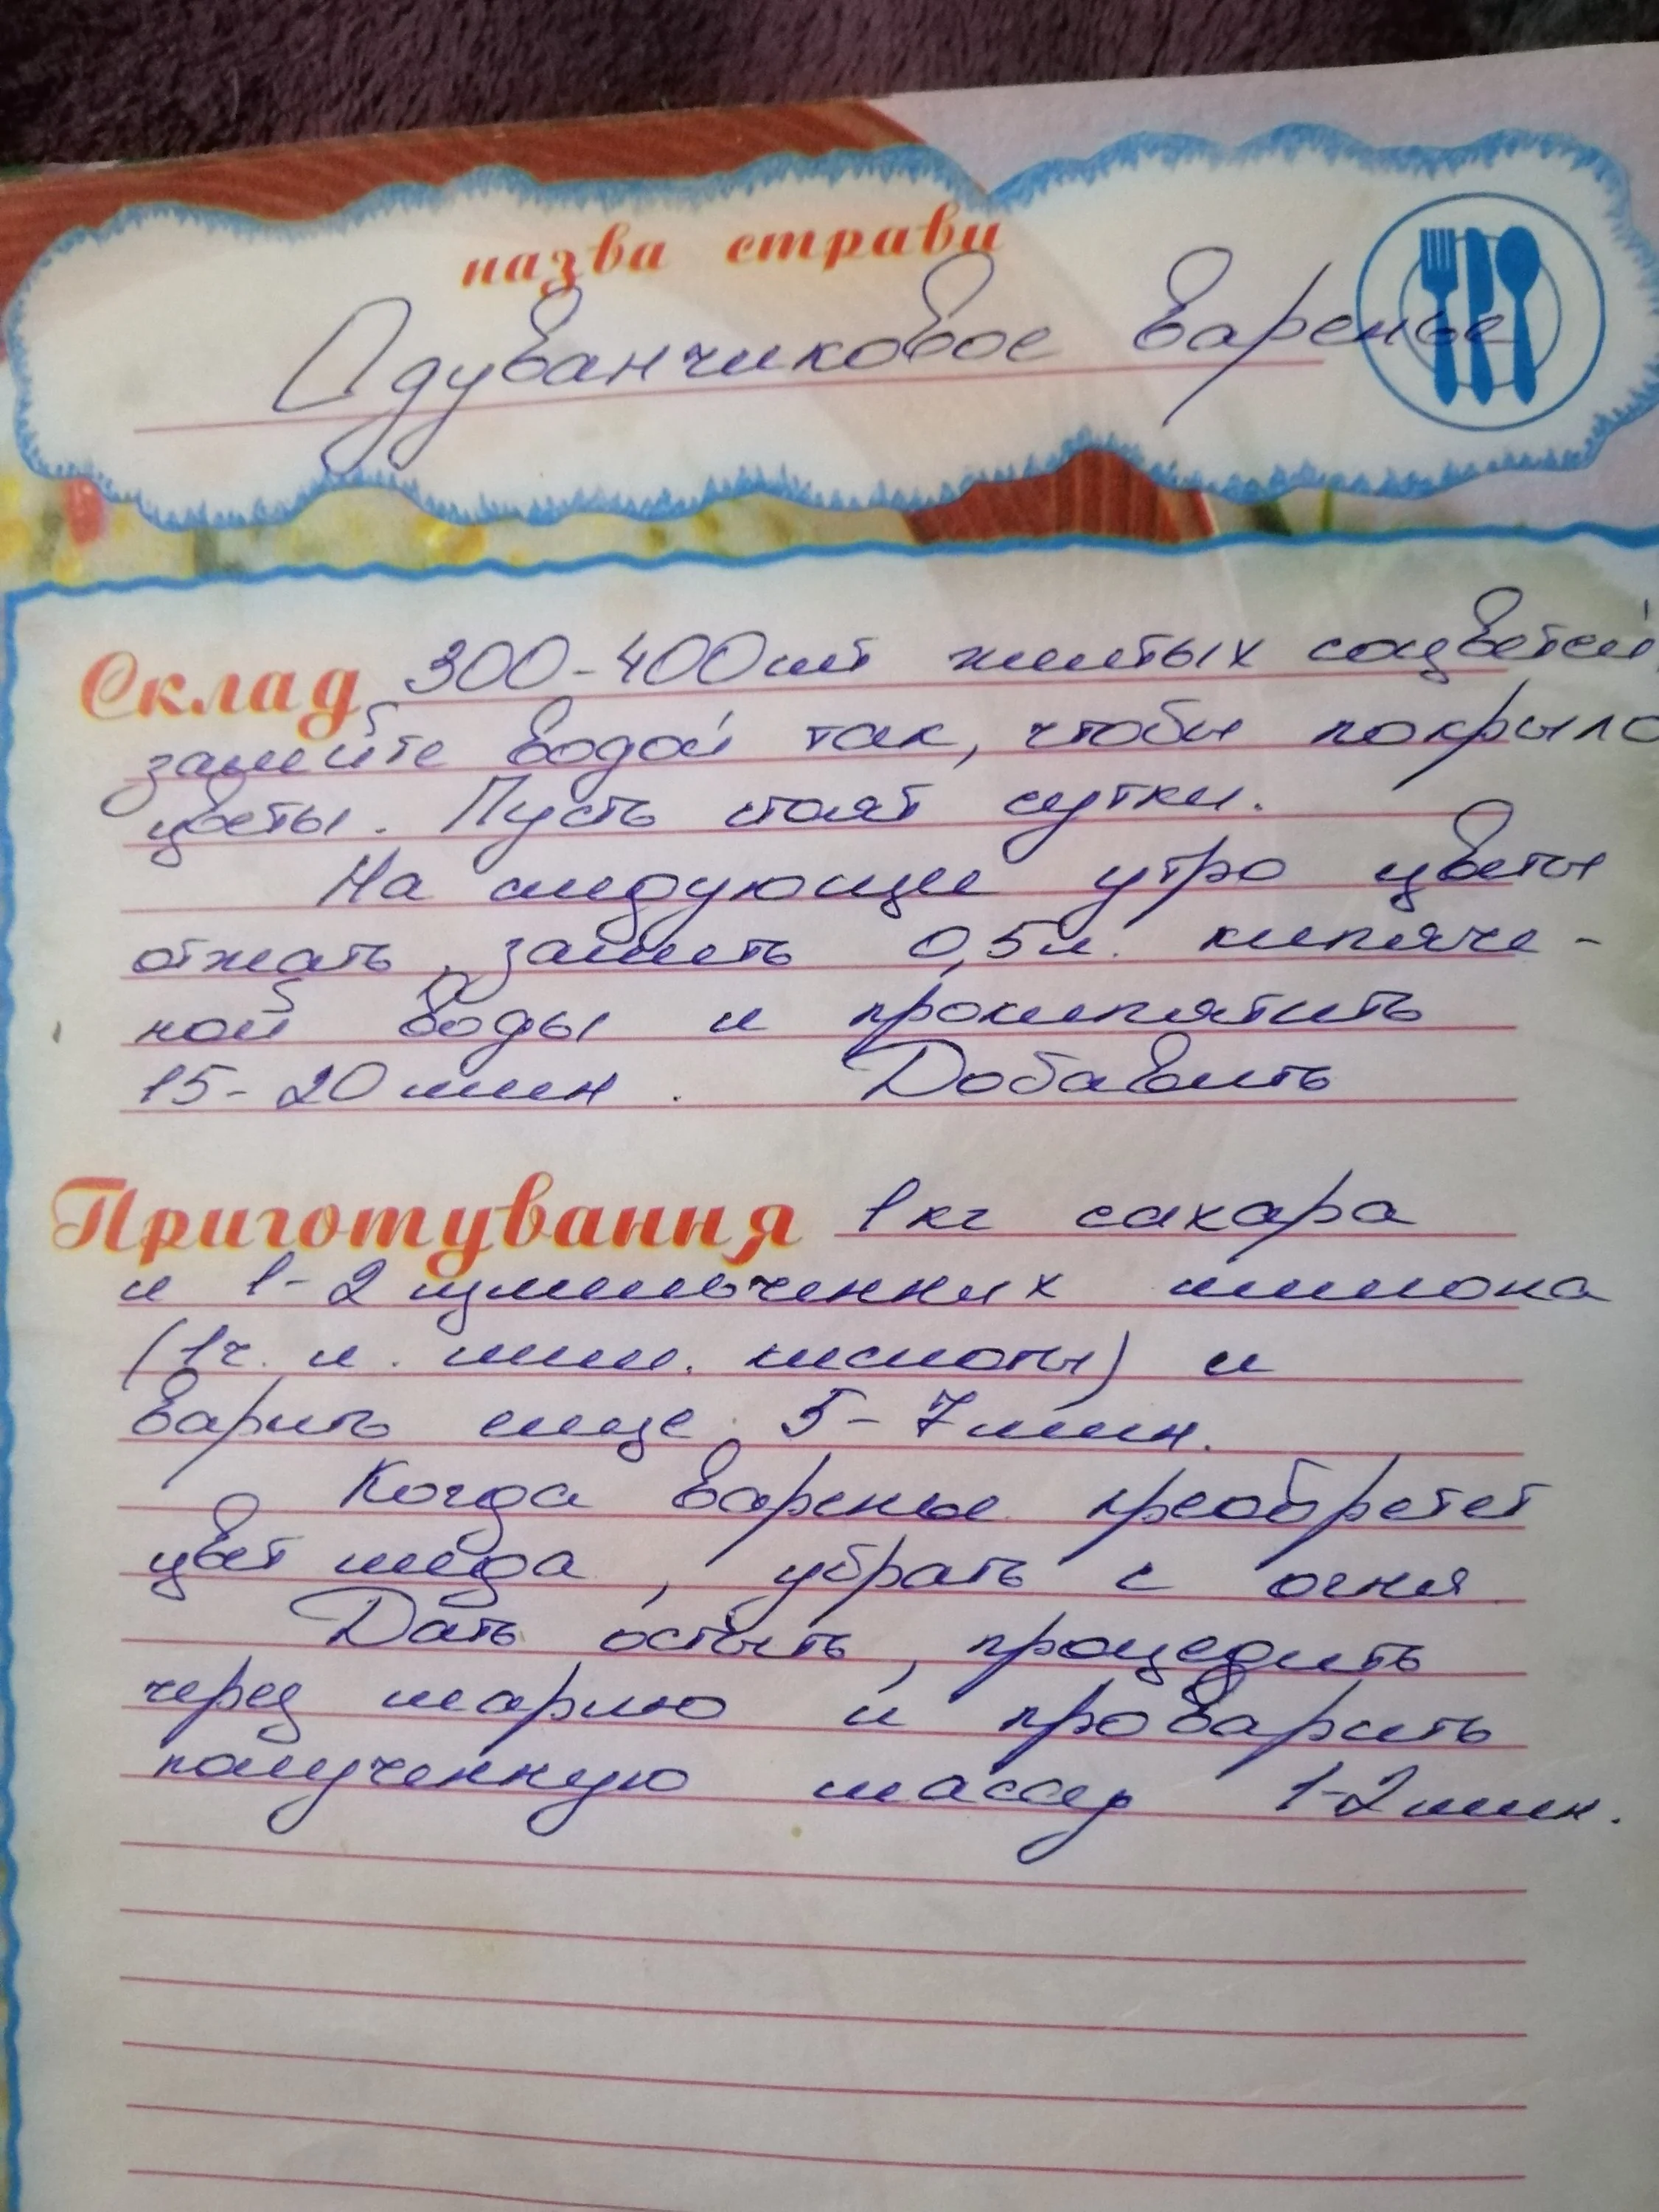 назва страви
Одуванчиковое варенье
Склад 300-400 шт желтых соцветей,
залейте водой так, чтобы покрыло
цветы. Пусть стоят сутки.
На следующее утро цветы
отжать, залить 0,5 л. кипяче-
ной воды и прокипятить
15-20 мин. Добавить
Приготування 1 кг сахара
и 1-2 измельченных лимона
(1 ч. л. лим. кислоты) и
варить еще 5-7 мин.
Когда варенье преобретет
цвет мёда, убрать с огня
Дать остыть, процедить
через марлю и проварить
полученную массу 1-2 мин.